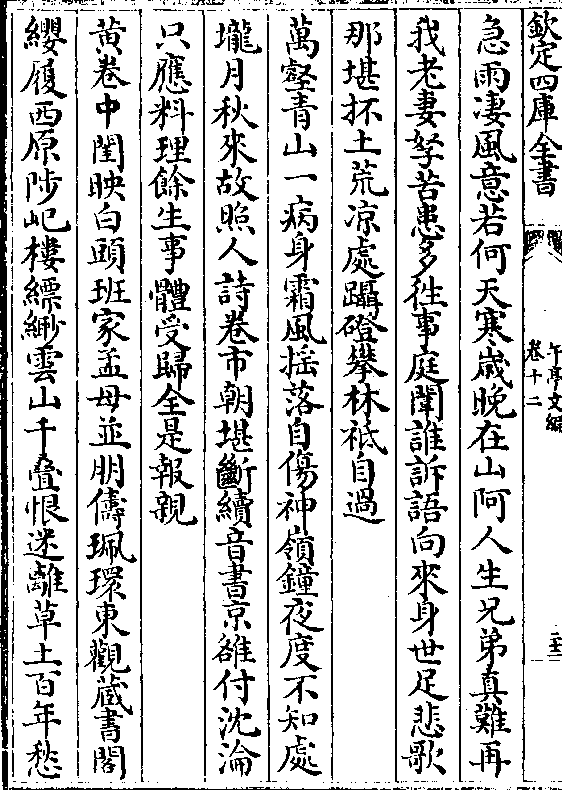 欽定四庫全書
午亭文編
卷十二
急雨凄風意若何天寒歲晚在山阿人生兄弟真難再
我老妻孥苦患多徃事庭闈誰訴語向來身世足悲歌
那堪抔土荒凉處躡磴攀林祗自過
萬壑青山一病身霜風揺落自傷神嶺鐘夜度不知處
壠月秋來故照人詩卷市朝堪斷續音書京雒付沈淪
只應料理餘生事體受歸全是報親
黄卷中閨映白頤班家孟母並朋儔珮環東觀蔵書閣
纓履西原陟屺樓縹緲雲山千叠恨迷離草土百年愁